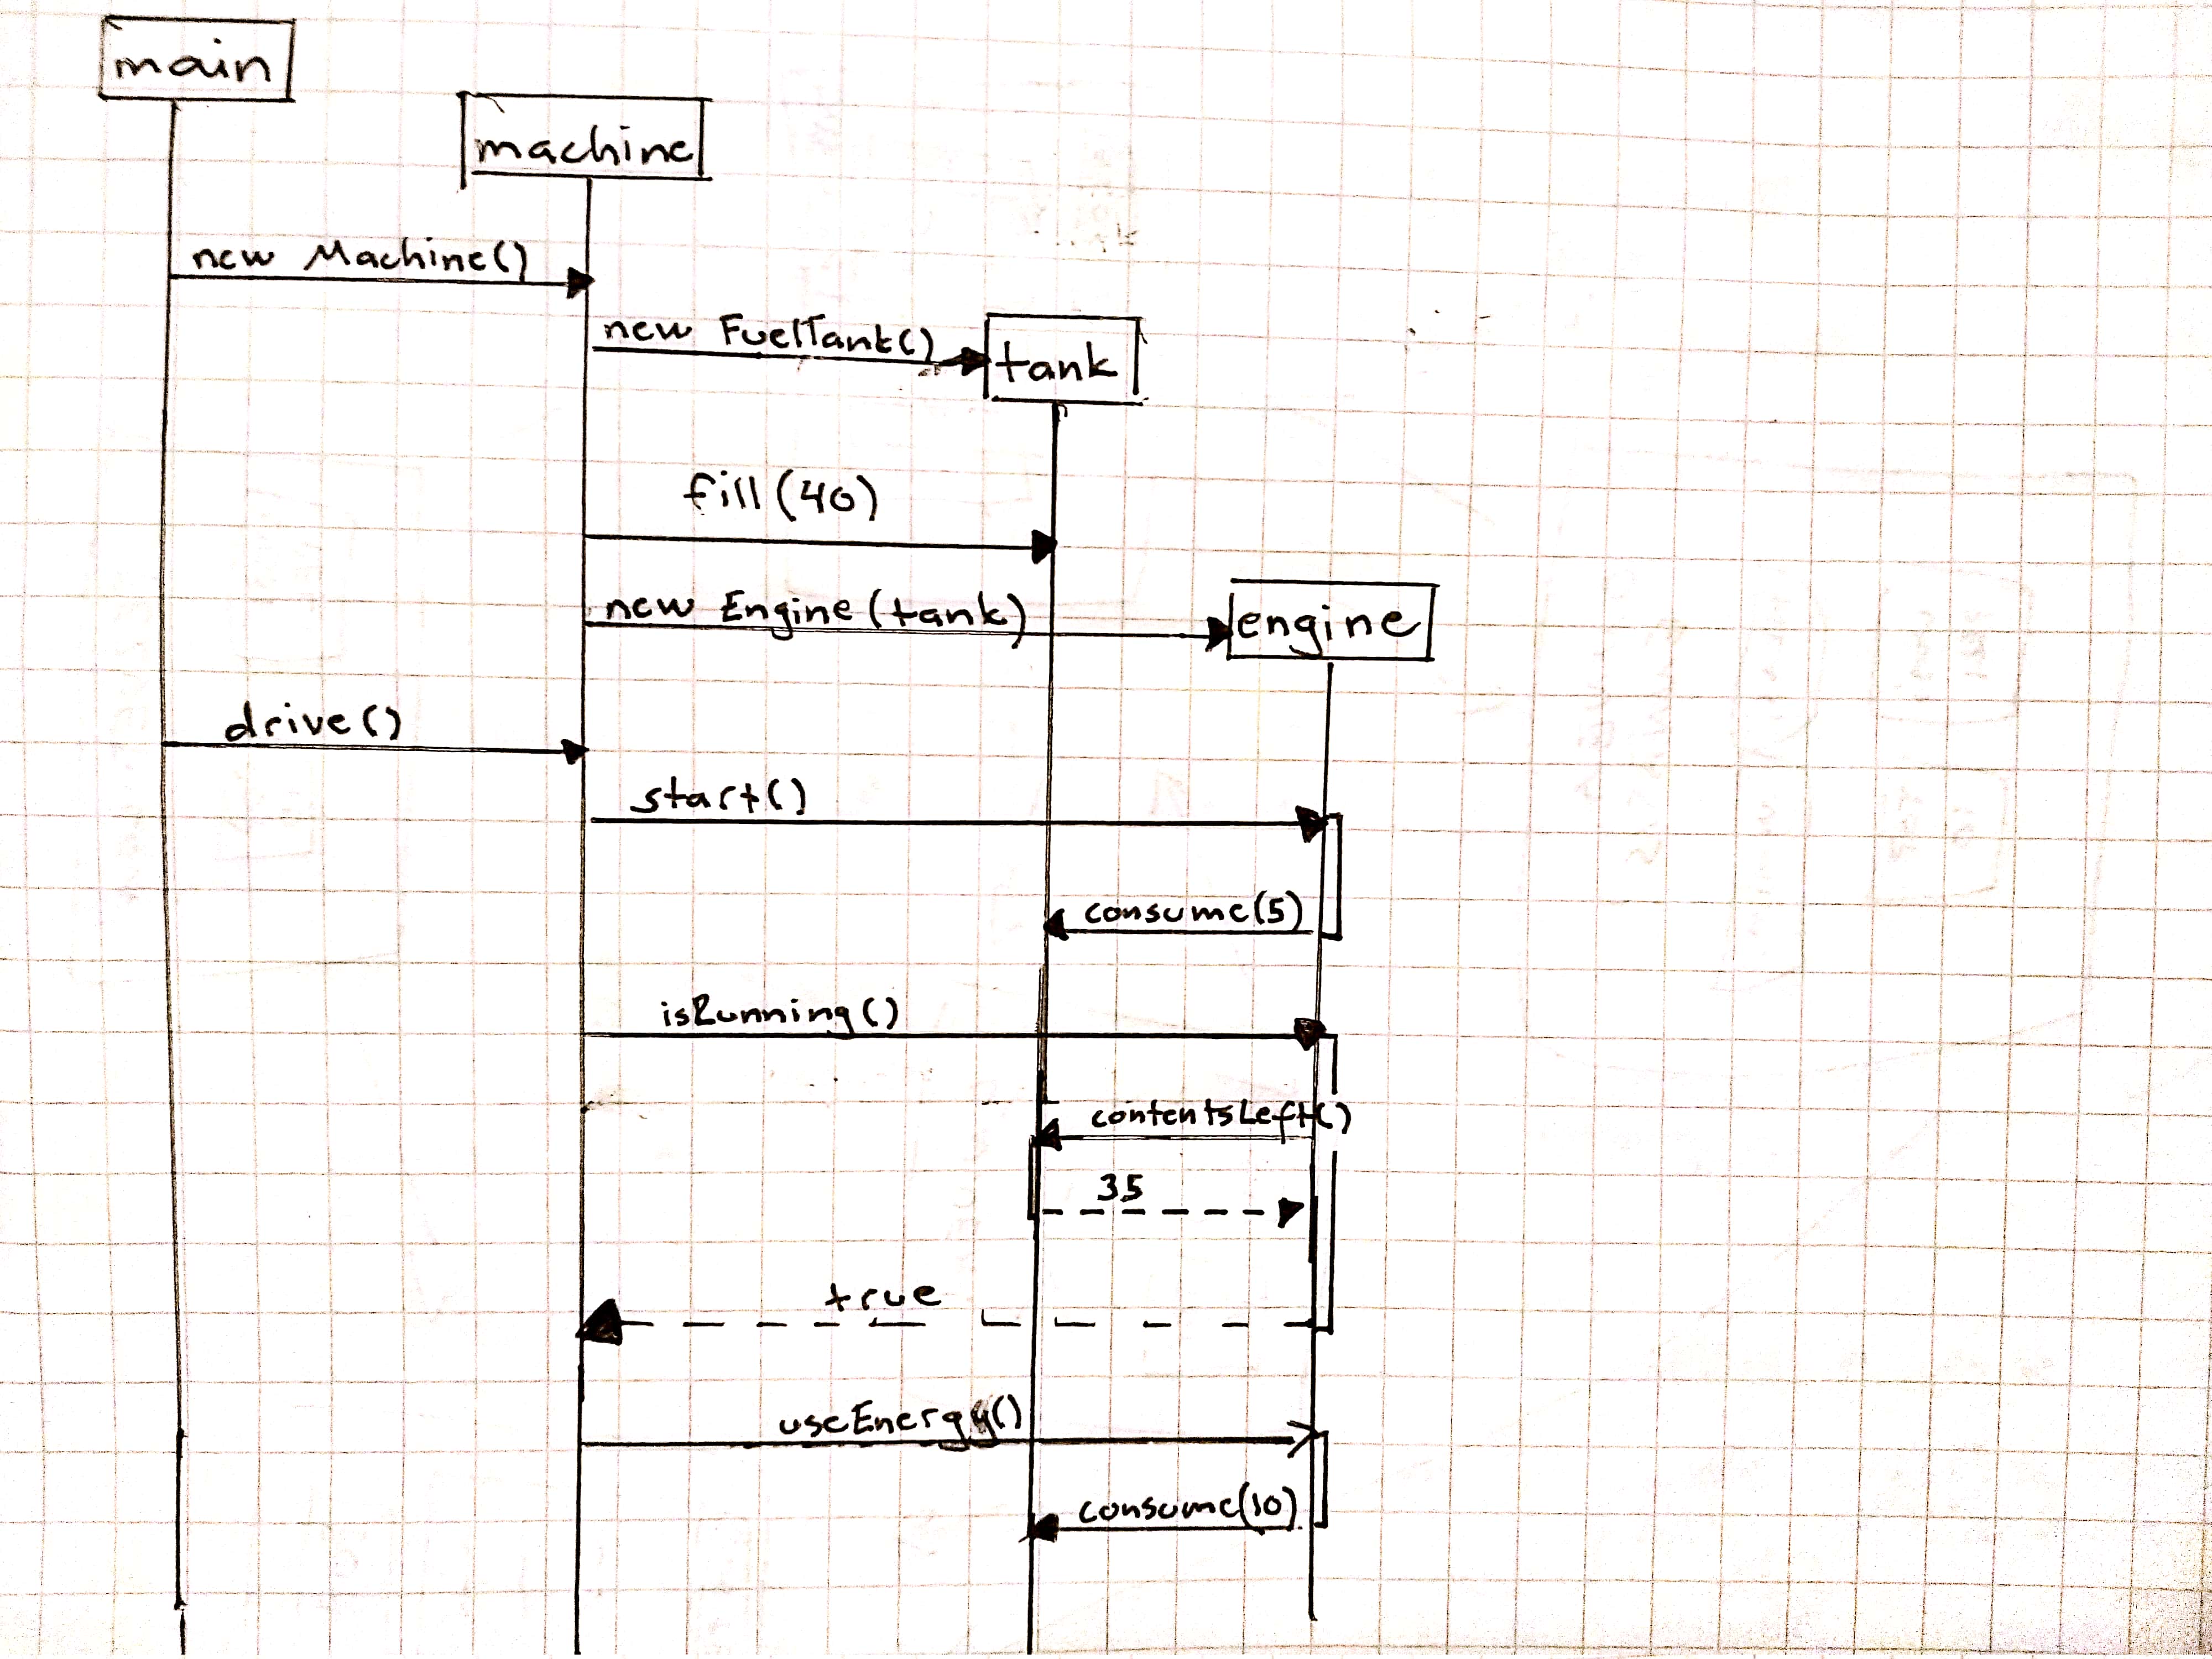 main
machine
new Machine()
new FuelTank()
tank
fill(40)
new Engine(tank)
engine
drive()
start()
consume(5)
isRunning()
contentsLeft()
35
true
useEnergy()
consume(10)